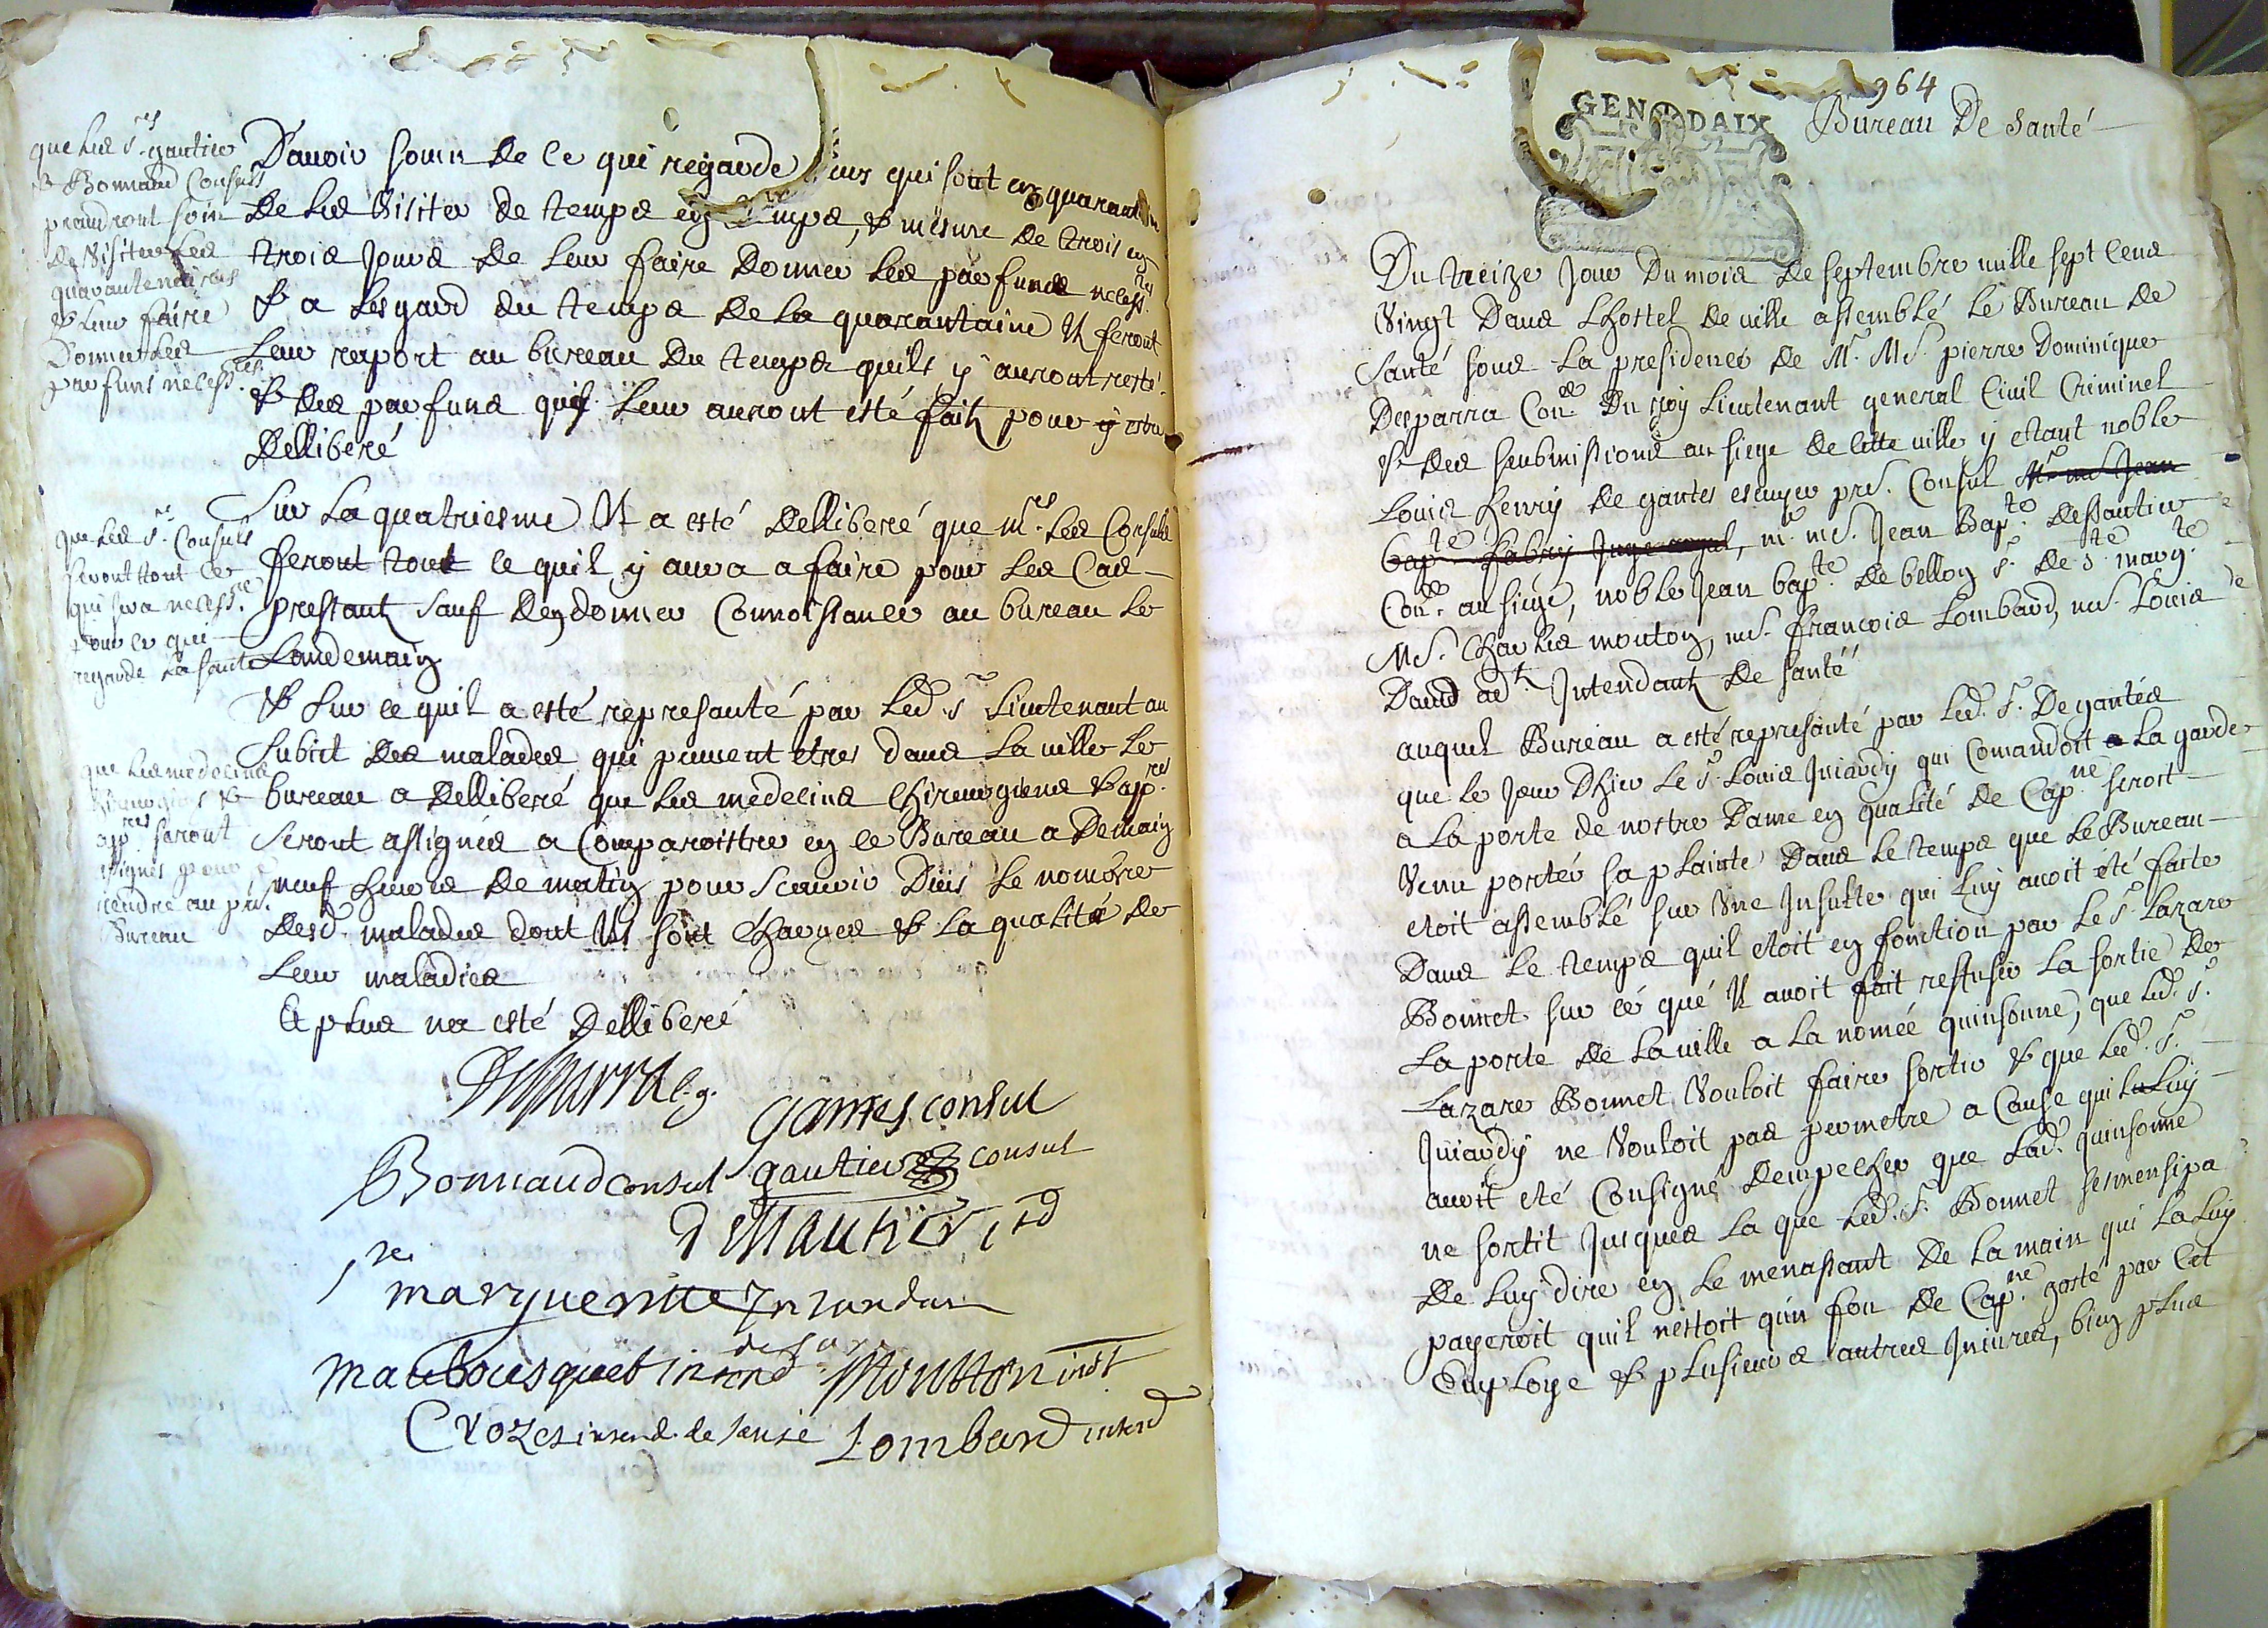 que les srs gautier
& Bonnaud Consuls
prandront soin
de Visiter les
quarantenaires
& leur faire
Donner les
parfuns necessres.
D'auoir soin de ce qui regarde qui sont en quarantaine
de les Visiter de temps en temps, & mesure de trois en
trois Jours de leur faire Donner les parfuns necessres
& a lesgard du temps de la quarantaine Il feront
leur raport au bureau du temps quils y auront resté
& des parfuns quil leur auront esté fait pour y estre
Delliberé
que les srs. Consuls
feront tout ce
qui sera necessre.
pour ce qui
regarde la santé
Sur la quatriesme Il a esté delliberé que mrs. les Consuls
feront tout ce quil y aura a faire pour les Cas
pressant sauf den donner Connoissance au bureau le
landemain
& sur ce quil a esté represanté par led. sr Lieutenant au
subiet des malades qui peuuent etres dans la ville le
que les medecins
Chirurgiens &
appres seront
assignés pour se
rendre au pnt.
Bureau
bureau a delliberé que les medecins Chirurgiens & appres.
seront assignés a Comparoistre en ce Bureau a Demain
neuf heures de matin pour scauoir Deus le nombre
desd. malades dont Ils sont Charges & la qualité de
leur maladies
Et plus na esté Delliberé
Desparra l.g.
Gantes consul
Bonnaud consul gautier consul
Dessautier itd
ste
marguerite Intandan
de santé
Maubousquet intend Moutton indt
Crozes intend. de santé Lombard intend
964
GEN DAIX
Bureau De santé
Du treize Jour Du mois de septembre mille sept Cens
Vingt Dans Lhostel de ville assemblé le Bureau de
santé sous la presidence de Mr. Me. pierre Dominique
Desparra Coner Du roy Lieutenant general Ciuil Criminel
& des soubmissions au siege de cette ville y etant noble
Louis henry de gantes escuyer pr. Consul Mr me Jean
bapte fabry Juge royal, mr. me. Jean Bapte. dessautier
Coner. au siege, noble Jean bapte. de bellon sr. de ste margte
Me. Charles mouton, me. francois Lombard, me. Louis
Daud adt. Intendant de santé
auquel Bureau a esté represanté par led. sr. De gantés
que le Jour Dhier le sr. Louis Juiardy qui Comandoit a la garde
a la porte de nostre Dame en qualité de Capne. seroit
Venu porter sa plainte Dans le temps que le Bureau
etoit assemblé sur Vne Insulte qui luy auoit été faite
Dans le temps quil etoit en fonction par le sr. Lazare
Bonnet sur ce qué Il auoit fait reffuser la sortie de
la porte de la ville a la nomée quinsonne, que led. sr.
Lazare Bonnet Vouloit faire sortir & que led. sr.
Juiardy ne Vouloit pas permetre a Cause qui luy
auoit eté Consigné dempecher que lad. quinsonne
ne sortit Jusques la que led. sr. Bonnet semensipa
de luy dire en le menassant de la main qui la luy
payeroit quil nestoit qun fou de Capne. gasté par cet
Employe & plusieurs autres Iniures, bien plus